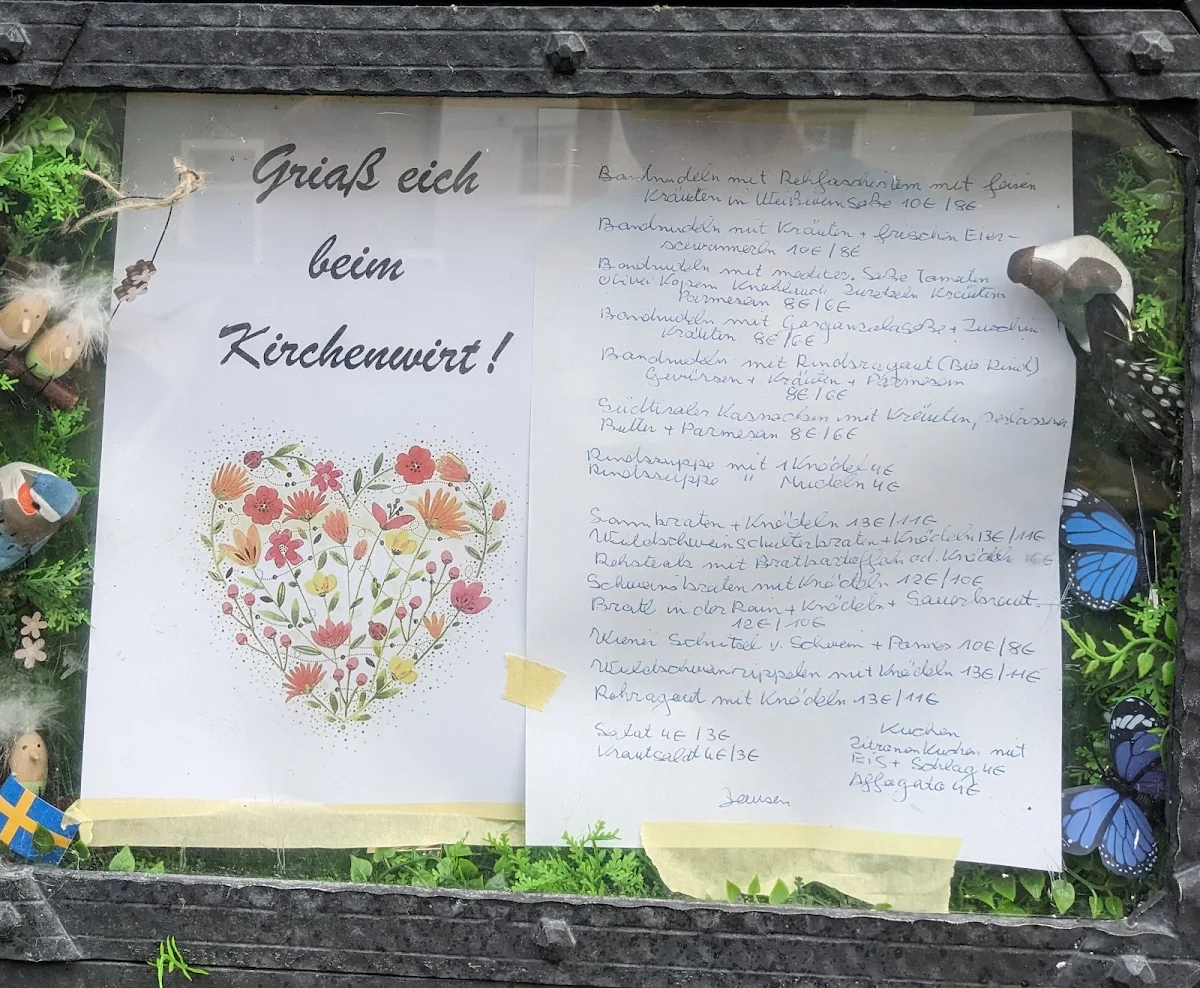 Griaß eich
beim
Kirchenwirt!
Bandnudeln mit Rehfaschiertem mit feinen
Kräutern in Weißweinsoße 10€ / 8€
Bandnudeln mit Kräutern + frischen Eier-
schwammerln 10€ / 8€
Bandnudeln mit mediter. Soße Tomaten
Oliven Kapern Knoblauch Kräutern
Parmesan 8€ / 6€
Bandnudeln mit Gorganzolasoße + Zucchini
Kräutern 8€ / 6€
Bandnudeln mit Rindsragout (Bio Rind)
Gewürzen + Kräutern + Parmesan
8€ / 6€
Südtiroler Kasnocken mit Kräutern, zerlassener
Butter + Parmesan 8€ / 6€
Rindssuppe mit 1 Knödel 4€
Rindssuppe " Nudeln 4€
+ Knödeln 13€ / 11€
Wildschweinschulterbraten + Knödeln 13€ / 11€
Rehsteak mit Bratkartoffeln od. Knödeln
Schweinsbraten mit Knödeln 12€ / 10€
Bratl in der Rain + Knödeln + Sauerkraut
12€ / 10€
Wiener Schnitzel v. Schwein + Pommes 10€ / 8€
Wildschweinrippelen mit Knödeln 13€ / 11€
Rehragout mit Knödeln 13€ / 11€
Salat 4€ / 3€
Krautsalat 4€ / 3€
Kuchen
Zitronenkuchen mit
Eis + Schlag 4€
Affogato 4€